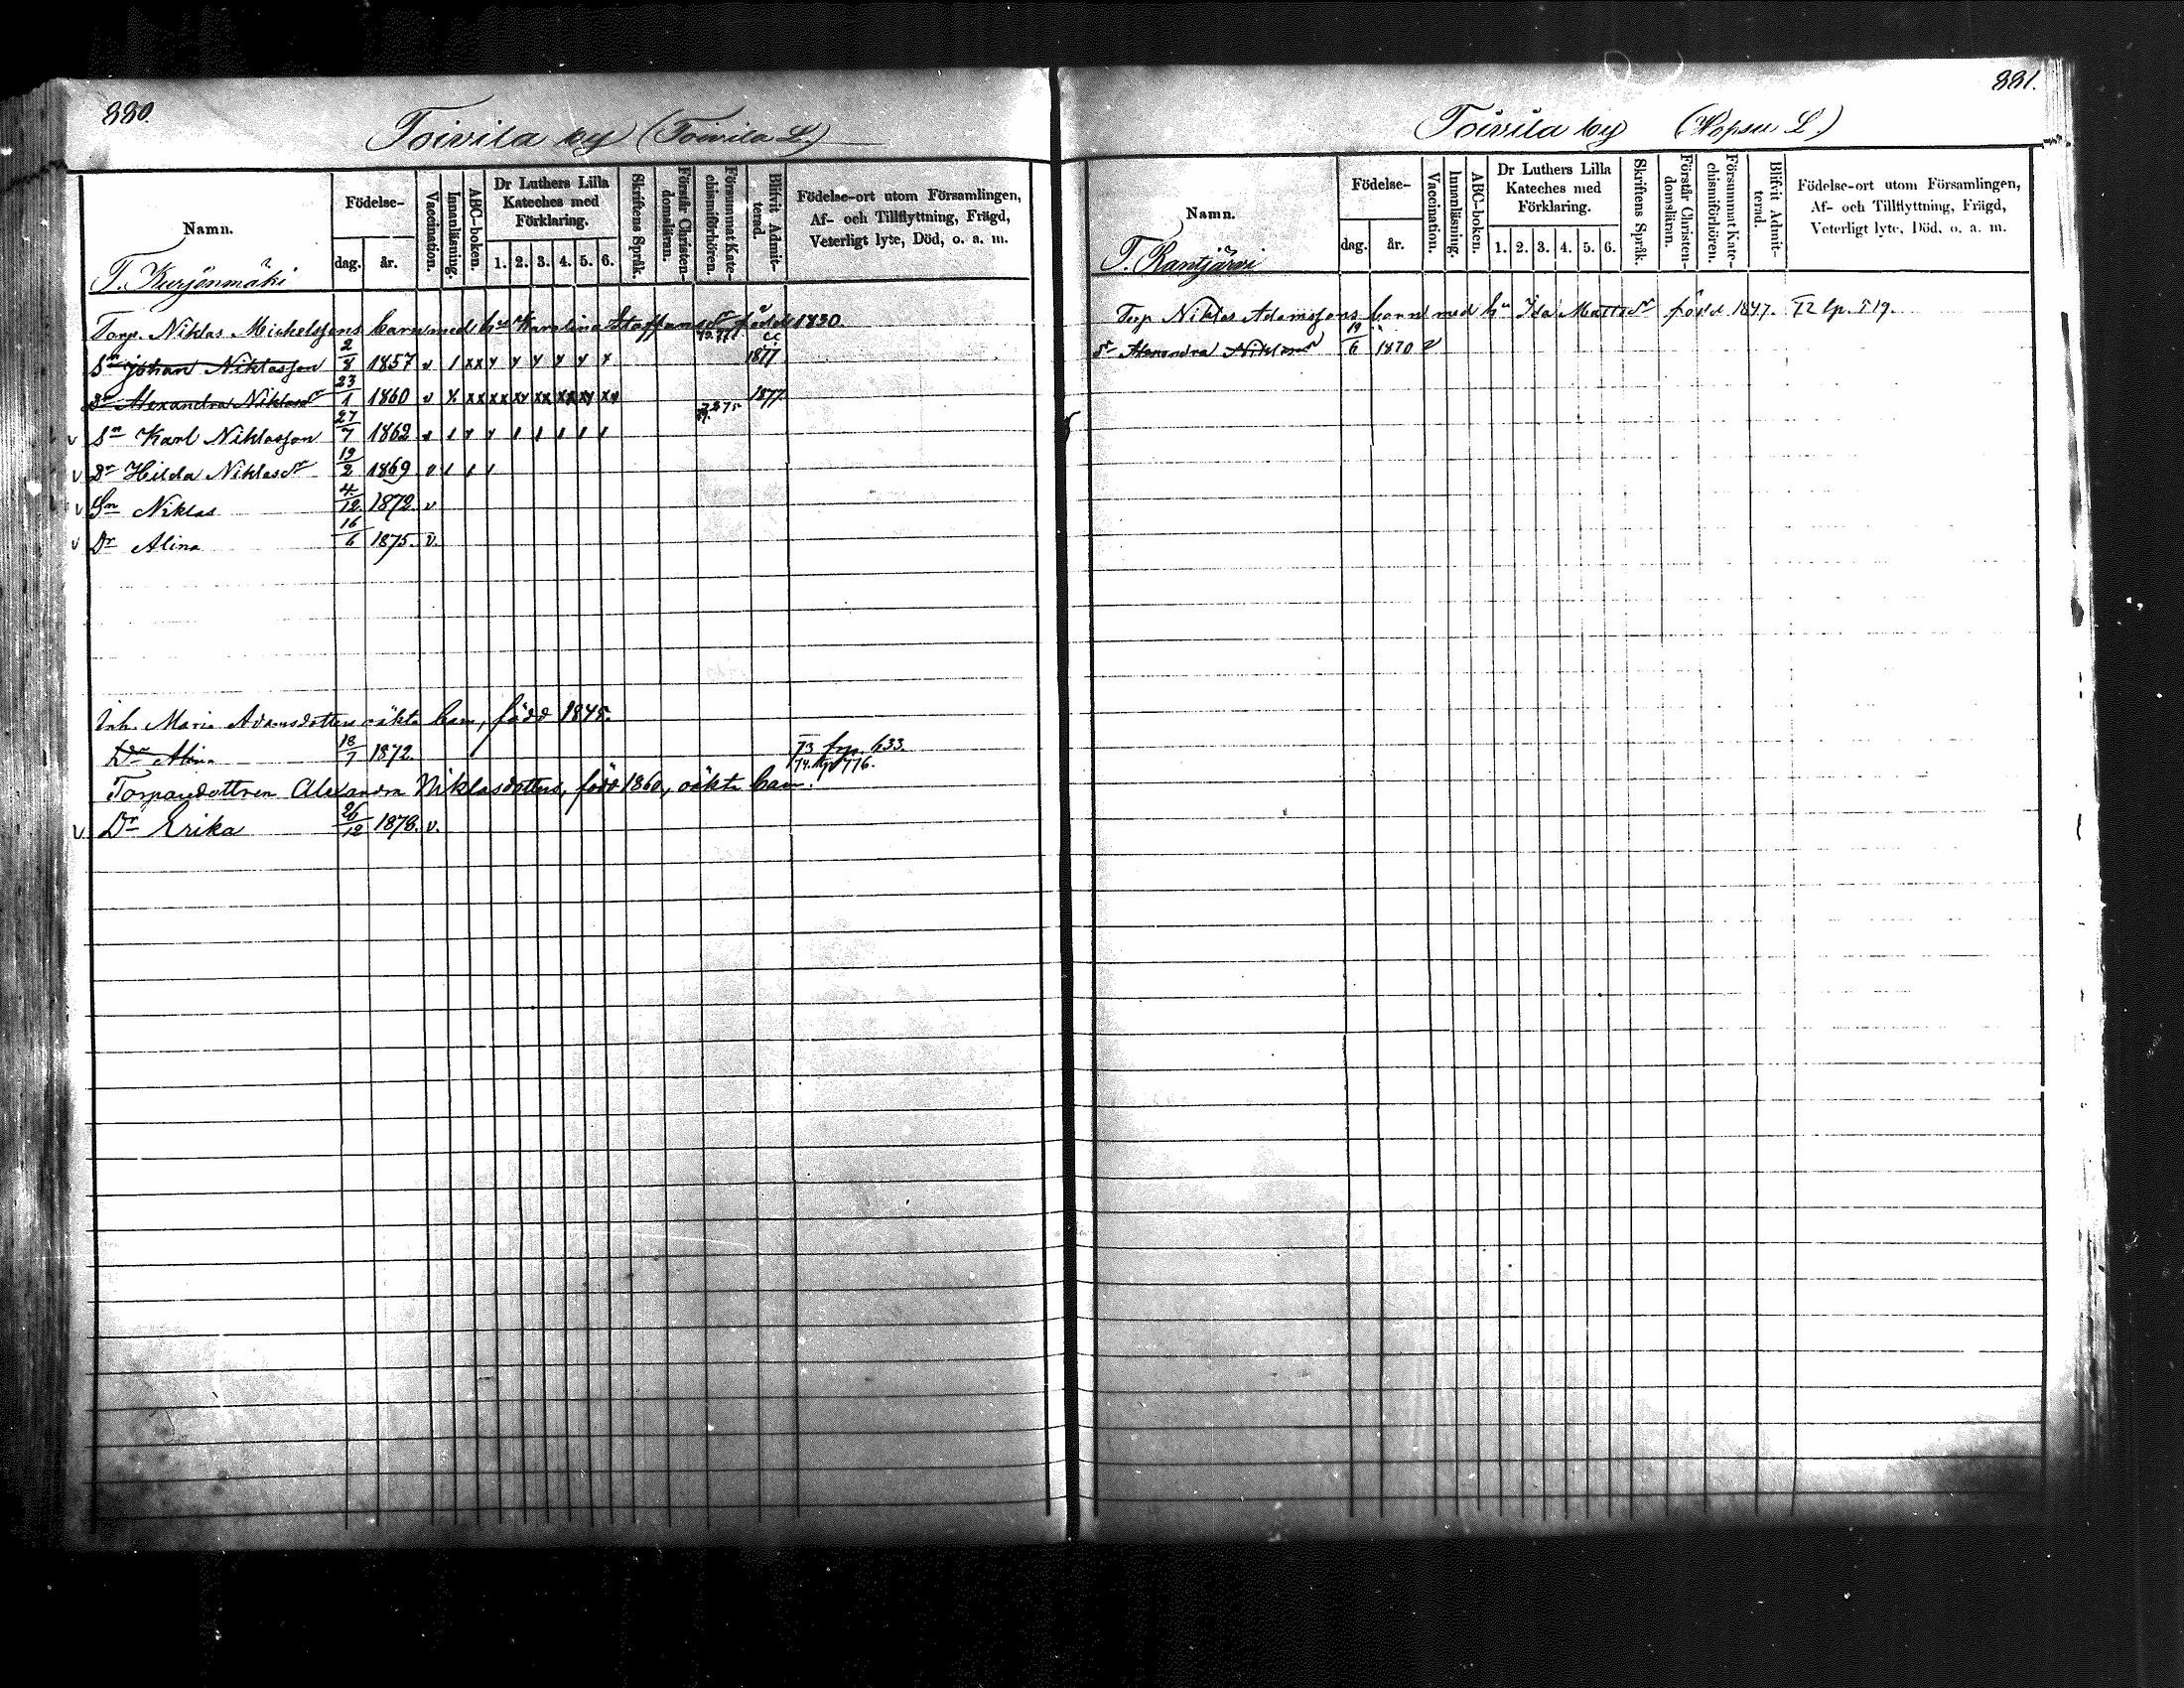 880.
Toivila by (Toivila L.)
Namn.
Födelse-
dag.
år.
Vaccination.
Innanläsning.
ABC-boken.
Dr Luthers Lilla Kateches med Förklaring.
1. 2. 3. 4. 5. 6.
Skriftens Språk.
Förstår Christendomsläran.
Försummat Katechismiförhören.
Blifvit Admitterad.
Födelse-ort utom Församlingen, Af- och Tillflyttning, Frägd, Veterligt lyte, Död, o. a. m.
T. Kurjönmäki
Torp. Niklas Michelssons barn med hu Karolina Staffansdr född 1830.
Sn Johan Niklasson 2/8 1857 v 1877
Dr Alexandra Niklasdr 23/1 1860 v 1877
v Sn Karl Niklasson 27/7 1862
v Dr Hilda Niklasdr 19/2 1869 v
v Sn Niklas 4/12 1872 v
v Dr Alina 16/6 1875. v.
Inh. Maria Adamsdotters oäkta barn, född 1845.
Dr Alina 18/7 1872. 73 frp. 633.
74. 776.
Torparedottren Alexandra Niklasdotters, född 1860, oäkta barn.
v Dr Erika 26/12 1878. v.
881.
Toivila by (Wopsu L.)
Namn.
Födelse-
dag.
år.
Vaccination.
Innanläsning.
ABC-boken.
Dr Luthers Lilla Kateches med Förklaring.
1. 2. 3. 4. 5. 6.
Skriftens Språk.
Förstår Christendomsläran.
Försummat Katechismiförhören.
Blifvit Admitterad.
Födelse-ort utom Församlingen, Af- och Tillflyttning, Frägd, Veterligt lyte, Död, o. a. m.
T. Rantjärvi
Torp Niklas Adamssons barn med hu Ida Mattsdr född 1847. 72 lp. 519.
Dr Alexandra Niklasdr 19/6 1870 v